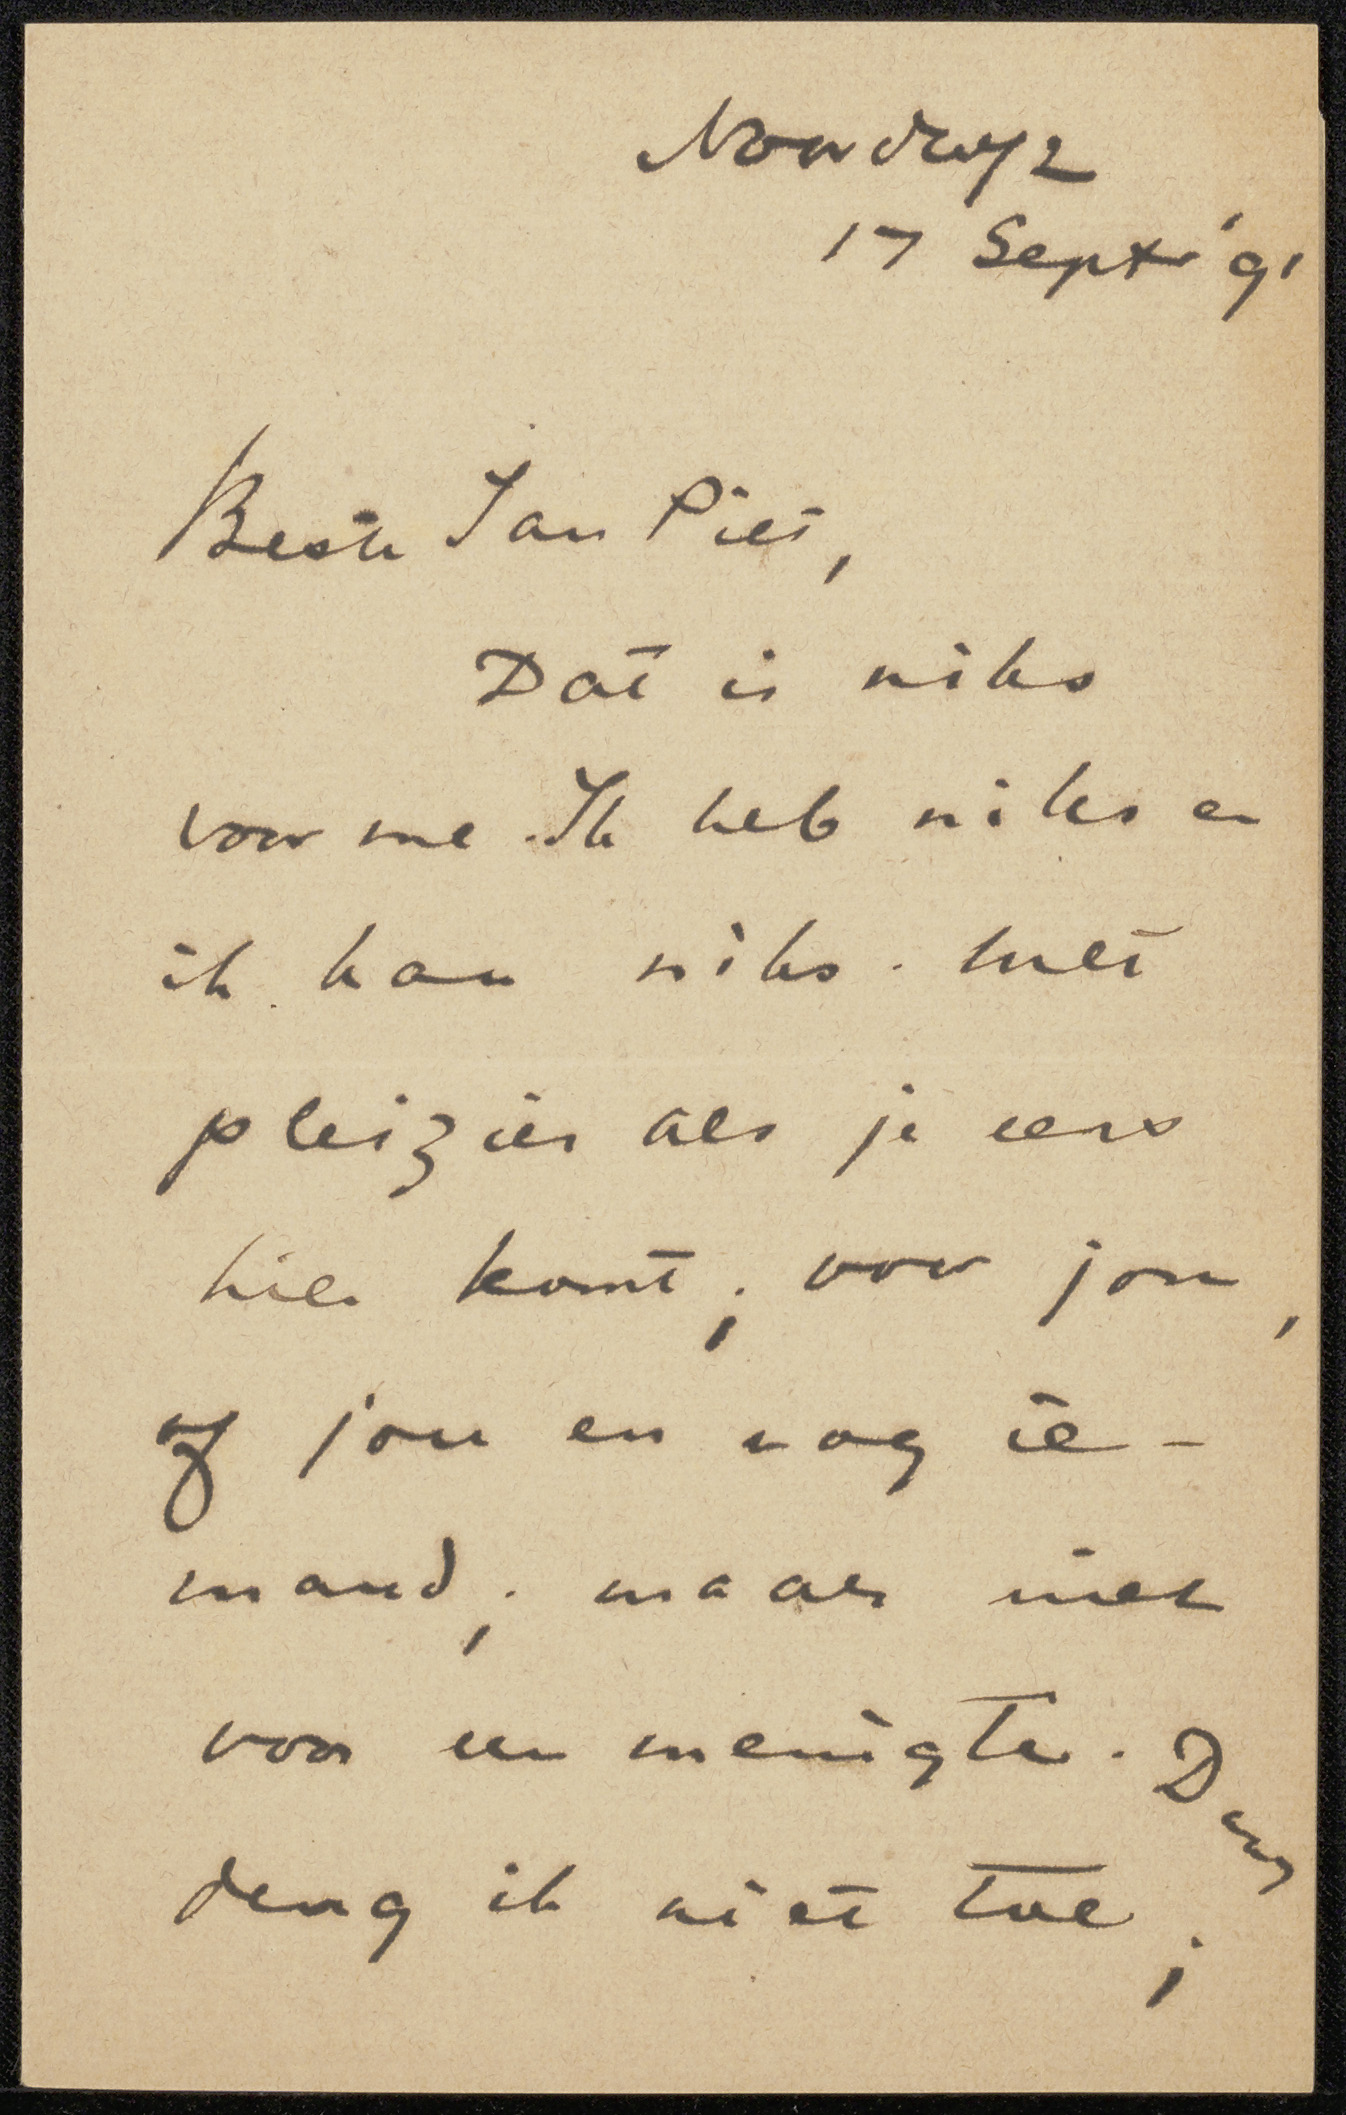 Noordwijk
17 Septr '91
Beste Jan Piet,
Dat is niks
voor me. Ik heb niks en
ik kan niks. Met
pleizier als je eens
hier komt; voor jou,
of jou en nog ie-
mand; maar niet
voor een menigte.
deug ik niet toe;